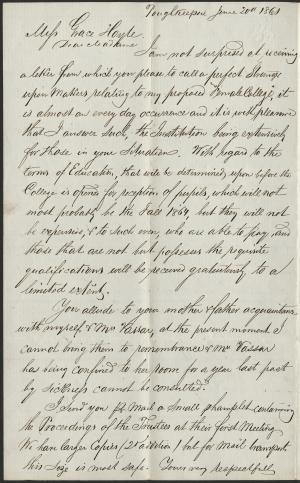 Poughkeepsie June 20th 1861
Miss Grace Hoyle
Dear Madame
I am not surprised at receiving
a letter from, which you please to call a perfect Strange
upon Matters relating to my proposed Female College, it
is almost an every day occurrence and it is with pleasure
that I answer such, the Institution being exclusively
for those in your Situation. With regard to the
terms of Education, that will be determined upon before the
College is opened for reception of pupils, which will not
most probably be till Fall 1864, but they will not
be expensive, & to such even, who are able to pay, and
those that are not but possess the requisite
qualifications will be received gratuitously to a
limited extent.
You allude to your mother & father acquaintance
with myself & Mrs Vassar, at the present moment I
cannot bring them to remembrance & Mrs Vassar
has being confined to her room for a year last past
by sickness cannot be consulted.
I send you pr Mail a small phamplet containing
the Proceedings of the Trustees at their first Meeting
We have larger Copies (2d edition) but for Mail transport
this Size is most safe. Yours very respectfull